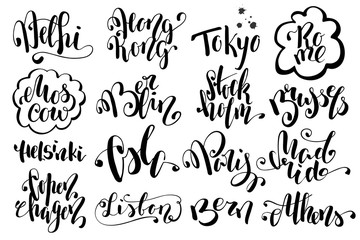 Delhi
Hong
Kong
Tokyo
Ro
me
Mos
cow
Ber
lin
Stock
holm
Brussels
Helsinki
Oslo
Paris
Mad
rid
Copen
hagen
Lisbon
Bern
Athens